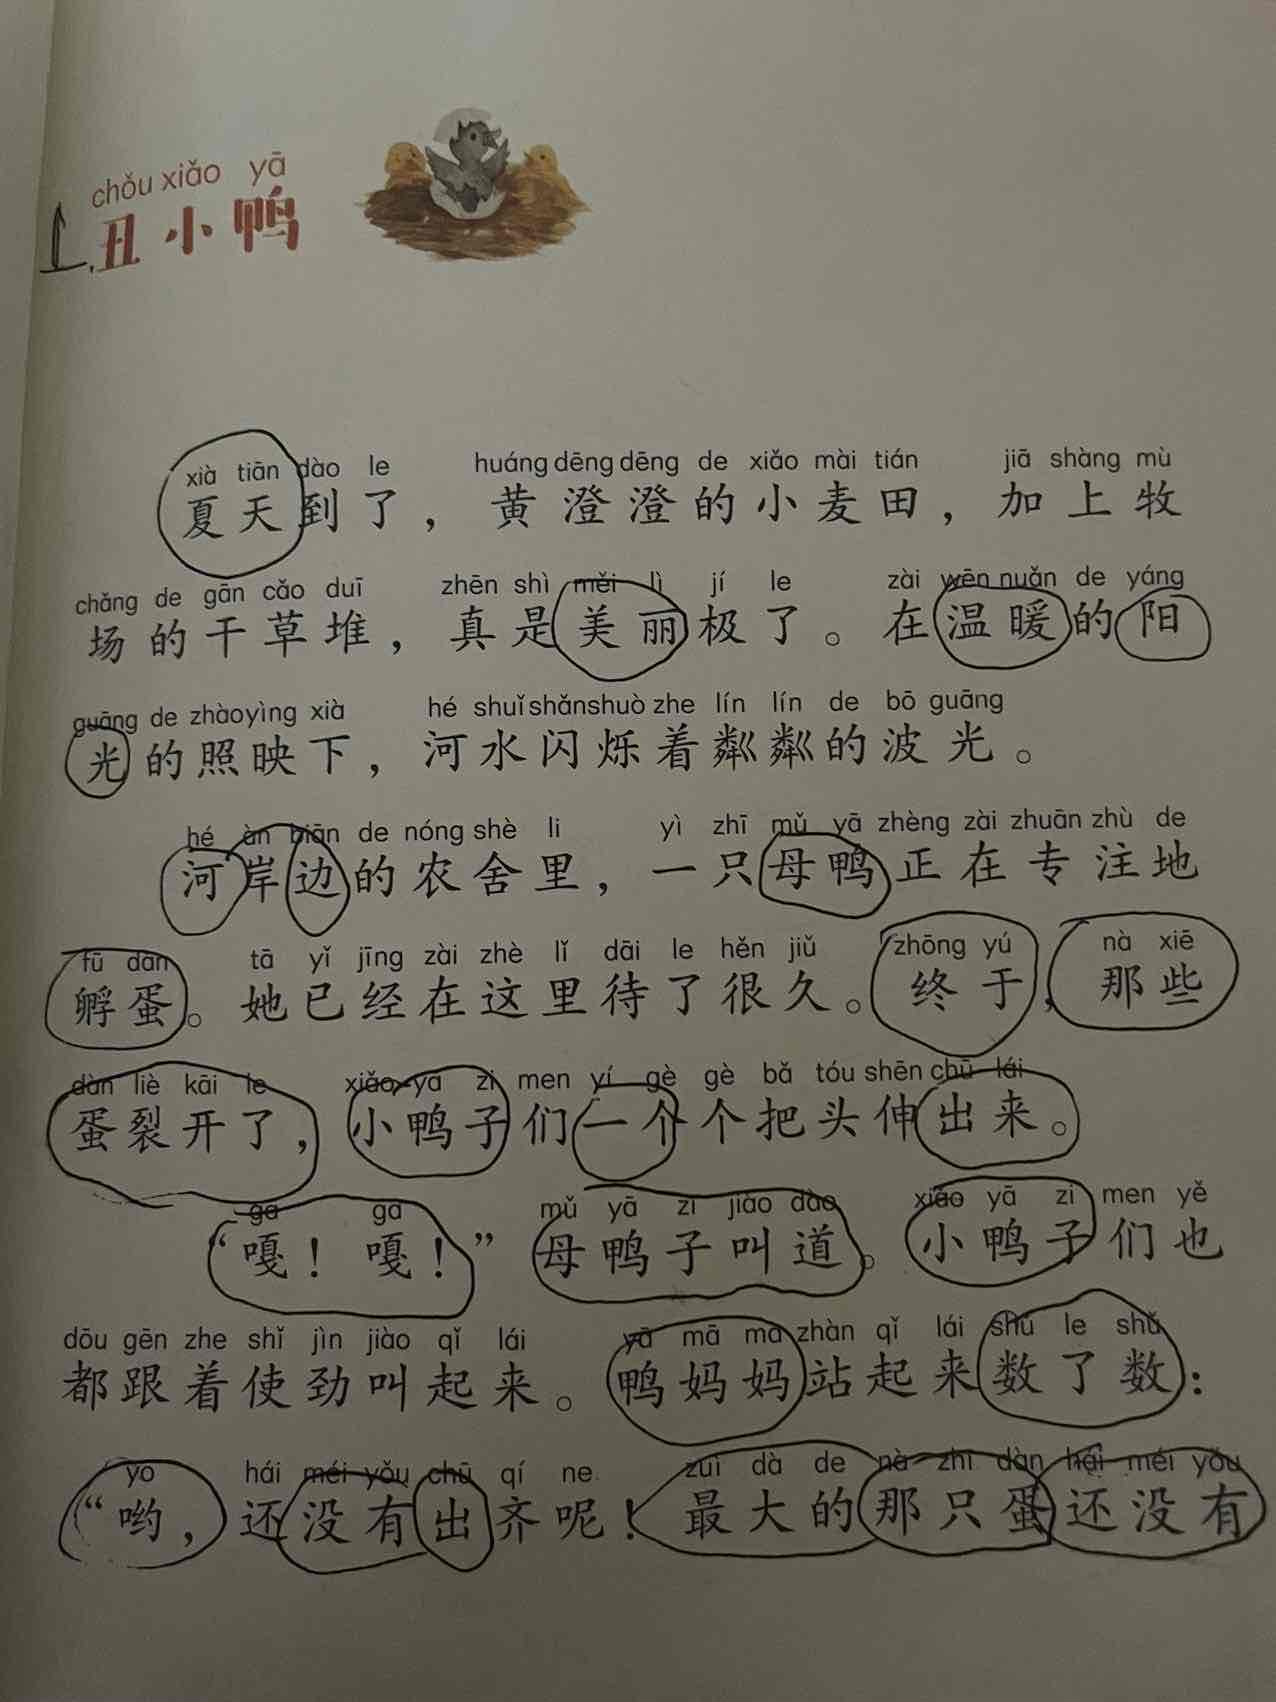 chǒu xiǎo yā
1.丑小鸭
xià tiān dào le huáng dēng dēng de xiǎo mài tián jiā shàng mù
夏天到了，黄澄澄的小麦田，加上牧
chǎng de gān cǎo duī zhēn shì měi lì jí le zài wēn nuǎn de yáng
场的干草堆，真是美丽极了。在温暖的阳
guāng de zhào yìng xià hé shuǐ shǎn shuò zhe lín lín de bō guāng
光的照映下，河水闪烁着粼粼的波光。
hé àn biān de nóng shè li yì zhī mǔ yā zhèng zài zhuān zhù de
河岸边的农舍里，一只母鸭正在专注地
fū dàn tā yǐ jīng zài zhè lǐ dāi le hěn jiǔ zhōng yú nà xiē
孵蛋。她已经在这里待了很久。终于，那些
dàn liè kāi le xiǎo yā zi men yí gè gè bǎ tóu shēn chū lái
蛋裂开了，小鸭子们一个个把头伸出来。
gā gā mǔ yā zi jiào dào xiǎo yā zi men yě
“嘎！嘎！”母鸭子叫道。小鸭子们也
dōu gēn zhe shǐ jìn jiào qǐ lái yā mā ma zhàn qǐ lái shǔ le shǔ
都跟着使劲叫起来。鸭妈妈站起来数了数：
yo hái méi yǒu chū qí ne zuì dà de nà zhī dàn hái méi yǒu
“哟，还没有出齐呢！最大的那只蛋还没有